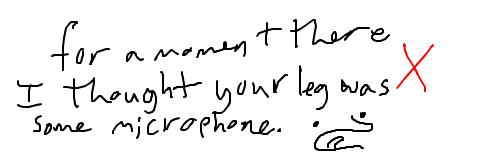 for a moment there
I thought your leg was
some microphone.